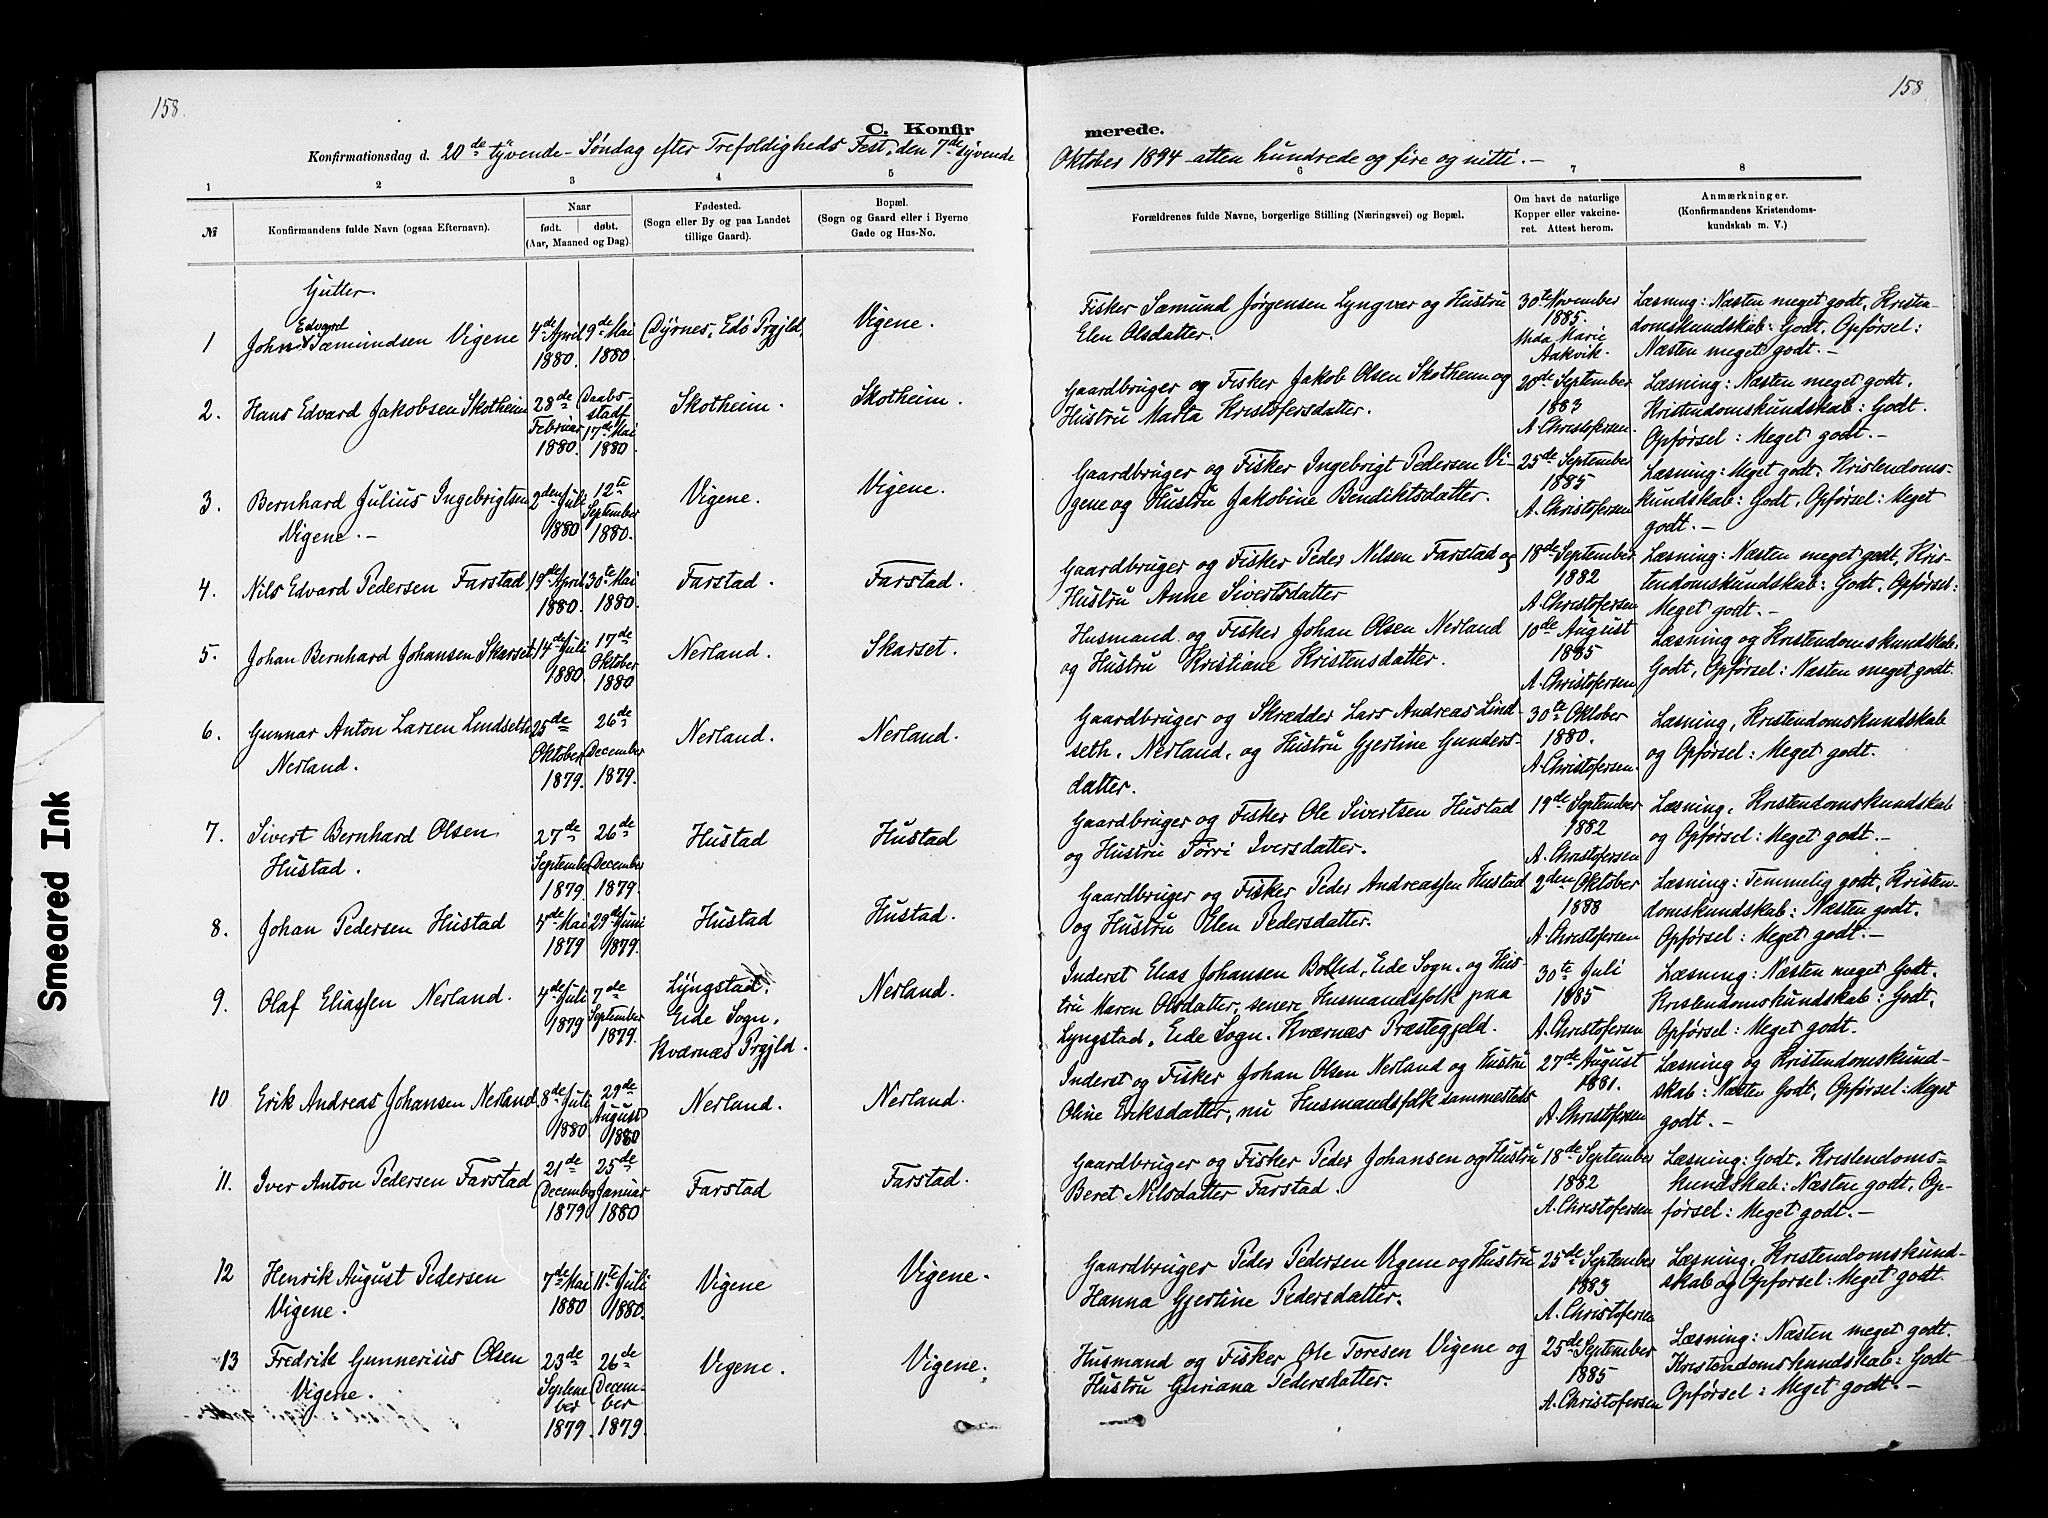 158.
158
C. Konfir
merede.
Konfirmationsdag d. 20de tyvende Søndag efter Trefoldigheds Fest, den 7de syvende
Oktober 1894 - atten hundrede og fire og nitti. -
1 2 3 4 5 6 7 8
№
Konfirmandens fulde Navn (ogsaa Efternavn).
Naar
født. døbt.
(Aar, Maaned og Dag).
Fødested.
(Sogn eller By og paa Landet
tillige Gaard).
Bopæl.
(Sogn og Gaard eller i Byerne
Gade og Hus-No.
Forældrenes fulde Navne, borgerlige Stilling (Næringsvei) og Bopæl.
Om havt de naturlige
Kopper eller vakcine-
ret. Attest herom.
Anmærkninger.
(Konfirmandens Kristendoms-
kundskab m. V.)
Gutter.
1
Edvard
John Sæmundsen Vigene
4de April
1880.
9de Mai
1880.
Dyrnes, Edø Prgjld.
Vigene.
Fisker Sæmund Jørgensen Lyngvær og Hustru
Elen Olsdatter.
30te November
1885.
Marie
Aakvik.
Læsning: Næsten meget godt, Kristen-
domskundskab: Godt, Opførsel:
Næsten meget godt. -
2.
Hans Edvard Jakobsen Skotheim
28de
Februar
1880.
Daabs-
stadf.
17de Mai
1880.
Skotheim.
Skotheim.
Gaardbruger og Fisker Jakob Olsen Skotheim og
Hustru Marta Kristofersdatter.
20de September
1883
A. Christofersen.
Læsning: Næsten meget godt.
Kristendomskundskab: Godt.
Opførsel: Meget godt. -
3.
Bernhard Julius Ingebrigtsen
Vigene. -
2den Juli
1880
12te
September
1880.
Vigene.
Vigene.
Gaardbruger og Fisker Ingebrigt Pedersen Vi-
gene og Hustru Jakobine Bendiktsdatter.
25de September
1885
A. Christofersen
Læsning: Meget godt. Kristendoms-
kundskab: Godt, Opførsel: Meget
godt. -
4.
Nils Edvard Pedersen Farstad
19de April
1880.
30te Mai
1880.
Farstad.
Farstad.
Gaardbruger og Fisker Peder Nilsen Farstad og
Hustru Anne Sivertsdatter
18de September
1882
A. Christofersen
Læsning: Næsten meget godt, Kris-
tendomskundskab: Godt, Opførsel:
Meget godt. -
5.
Johan Bernhard Johansen Skarset
14de Juli
1880
17de
Oktober
1880
Nerland.
Skarset.
Husmand og Fisker Johan Olsen Nerland
og Hustru Kristiane Kristensdatter.
10de August
1885
A. Christofersen
Læsning og Kristendomskundskab:
Godt, Opførsel: Næsten meget godt.
6.
Gunnar Anton Larsen Lindseth
Nerland.
25de
Oktober
1879
26de
December
1879.
Nerland.
Nerland.
Gaardbruger og Skrædder Lars Andreas Lind-
seth, Nerland, og Hustru Gjertine Gunders-
datter.
30te Oktober
1880.
A. Christofersen.
Læsning, Kristendomskundskab
og Opførsel: Meget godt.
7.
Sivert Bernhard Olsen
Hustad.
27de
September
1879
26de
December
1879.
Hustad
Hustad
Gaardbruger og Fisker Ole Sivertsen Hustad
og Hustru Tørri Iversdatter.
19de September
1882
A. Christofersen
Læsning, Kristendomskundskab
og Opførsel: Meget godt. -
8.
Johan Pedersen Hustad
4de Mai
1879
29de Juni
1879.
Hustad
Hustad.
Gaardbruger og Fisker Peder Andreassen Hustad
og Hustru Elen Pedersdatter.
2den Oktober
1888
A. Christofersen
Læsning: Temmelig godt, Kristen-
domskundskab: Næsten godt.
Opførsel: Meget godt. -
9.
Olaf Eliassen Nerland.
4de Juli
1879
7de
September
1879.
Lyngstad,
Eide Sogn,
Kværnæs Prgjld.
Nerland.
Inderst Elias Johansen Eide Sogn, og Hus-
tru Maren Olsdatter, senere Husmandsfolk paa
Lyngstad, Eide Sogn. Kværnæs Præstegjeld.
30te Juli
1885
A. Christofersen
Læsning: Næsten meget Godt.
Kristendomskundskab: Godt,
Opførsel: Meget godt.
10
Erik Andreas Johansen Nerland
8de Juli
1880
29de
August
1880
Nerland.
Nerland.
Inderst og Fisker Johan Olsen Nerland og Hustru
Oline Eriksdatter, nu Husmandsfolk sammesteds
27de August
1881.
A. Christofersen
Læsning og Kristendomskund-
skab: Næsten Godt, Opførsel: Meget
godt. -
11.
Iver Anton Pedersen Farstad
21de
December
1879
25de
Januar
1880
Farstad
Farstad.
Gaardbruger og Fisker Peder Johansen og Hustru
Beret Nilsdatter Farstad.
18de September
1882
A. Christofersen
Læsning: Godt. Kristendoms-
kundskab: Næsten godt, Op-
førsel: Meget godt. -
12
Henrik August Pedersen
Vigene.
7de Mai
1880
11te Juli
1880.
Vigene
Vigene.
Gaardbruger Peder Pedersen Vigene og Hustru
Hanna Gjertine Pedersdatter.
25de September
1883
A. Christofersen
Læsning, Kristendomskund-
skab og Opførsel: Meget godt.
13
Fredrik Gunnerius Olsen
Vigene.
23de
Septem-
ber
1879.
26de
Decem-
ber
1879.
Vigene.
Vigene.
Husmand og Fisker Ole Toresen Vigene og
Hustru Guriana Pedersdatter.
25de September
1885
A. Christofersen
Læsning: Næsten meget godt.
Kristendomskundskab: Godt
Opførsel: Meget godt. -
Smeared Ink